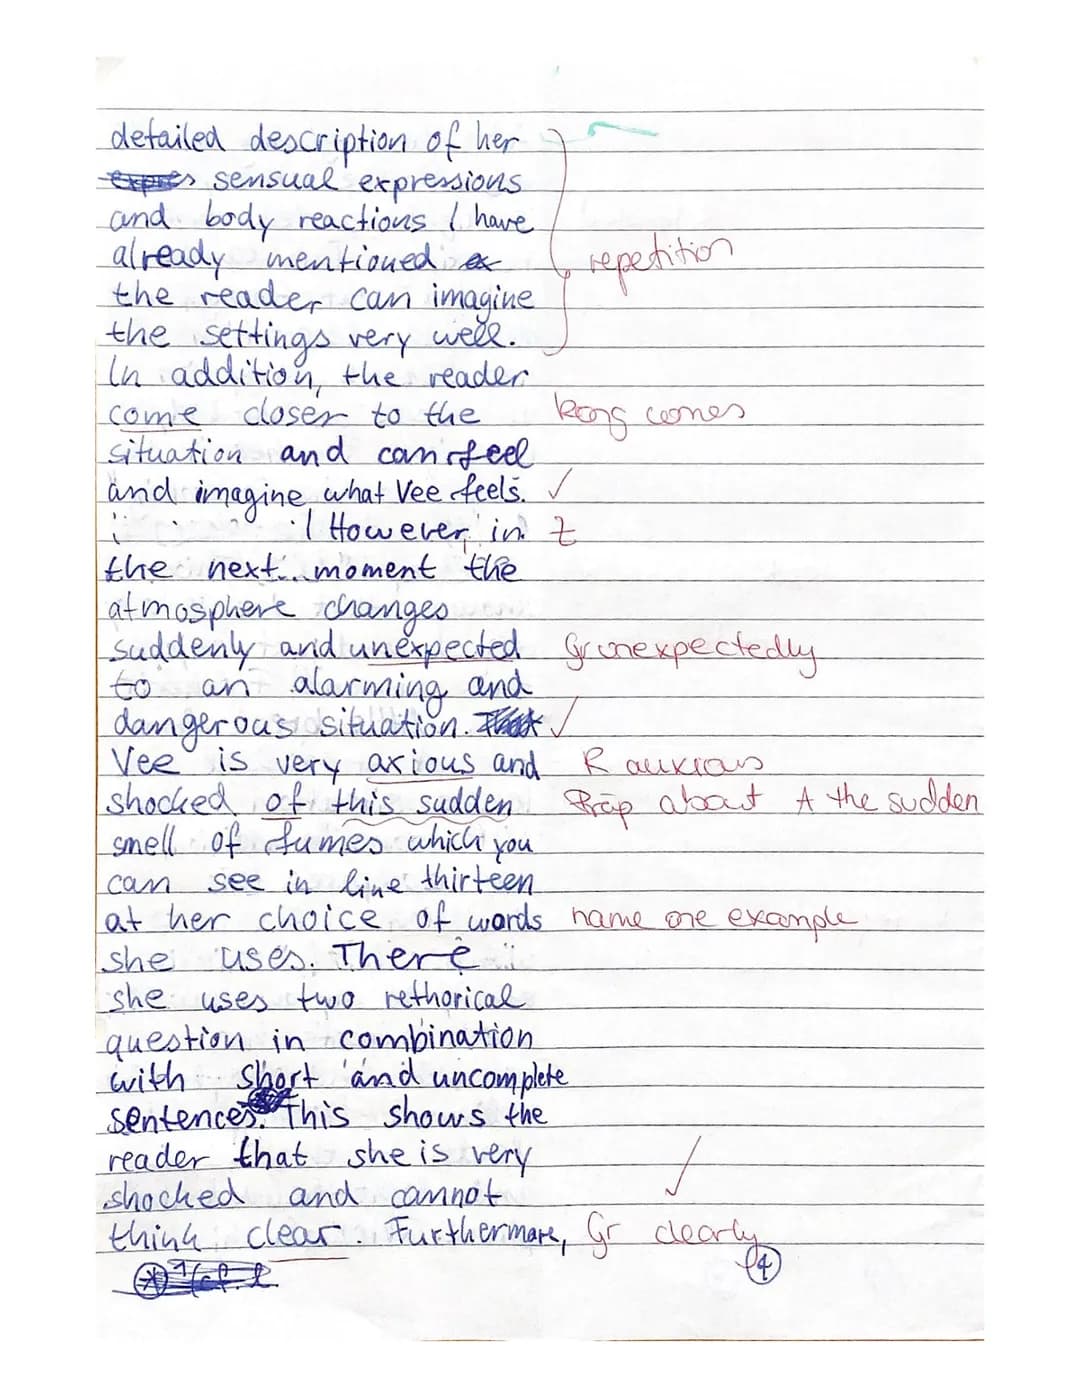 detailed description of her
expres sensual expressions
and body reactions I have
already mentioned ex repetition
the reader can imagine
the settings very well.
In addition, the reader
come closer to the Kong comes
situation and can feel
and imagine what Vee feels. ✓
I However, in Z
the next moment the
atmosphere changes
suddenly and unexpected Gr unexpectedly
to an alarming and
dangerous situation. ✓
Vee is very axious and R anxious
shocked of this sudden Präp about A the sudden
smell of fumes which you
can see in line thirteen
at her choice of words name one example
she uses. There
she uses two rethorical
question in combination
with short and uncomplete
sentences. This shows the
reader that she is very
shocked and cannot ✓
think clear. Furthermore, Gr clearly
4